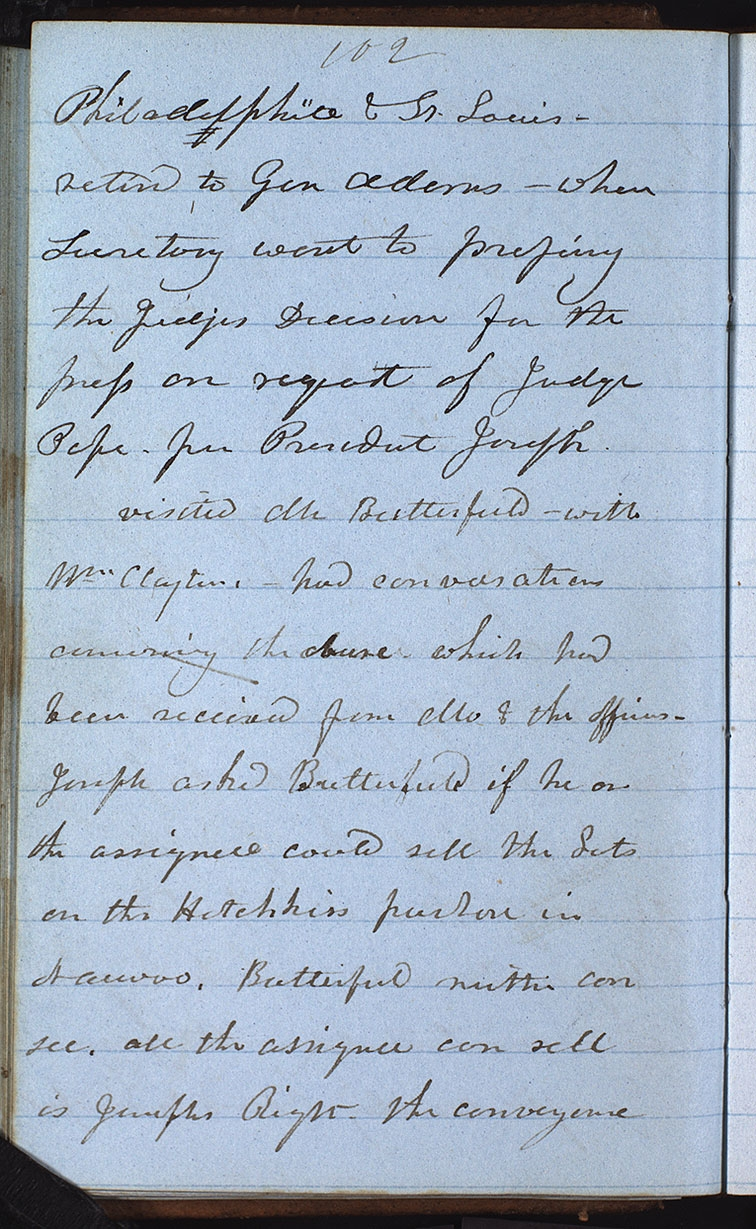 102
Philadelphia & St. Louis-
retird to Gen Adams - when
Secretary went to prepairing
the Judges Decision for the
press on request of Judge
Pope. per President Joseph.
visited Mr Butterfield - with
Wm Clayton. - had conversation
concerning the course which had
been received from Mo & the
Joseph asked Butterfield if he or
the assignee could sell the Lots
on the Hotchkiss purchase in
Nauvoo. Butterfield neither can
see. all the assignee can sell
is Josephs Right. the conveyance